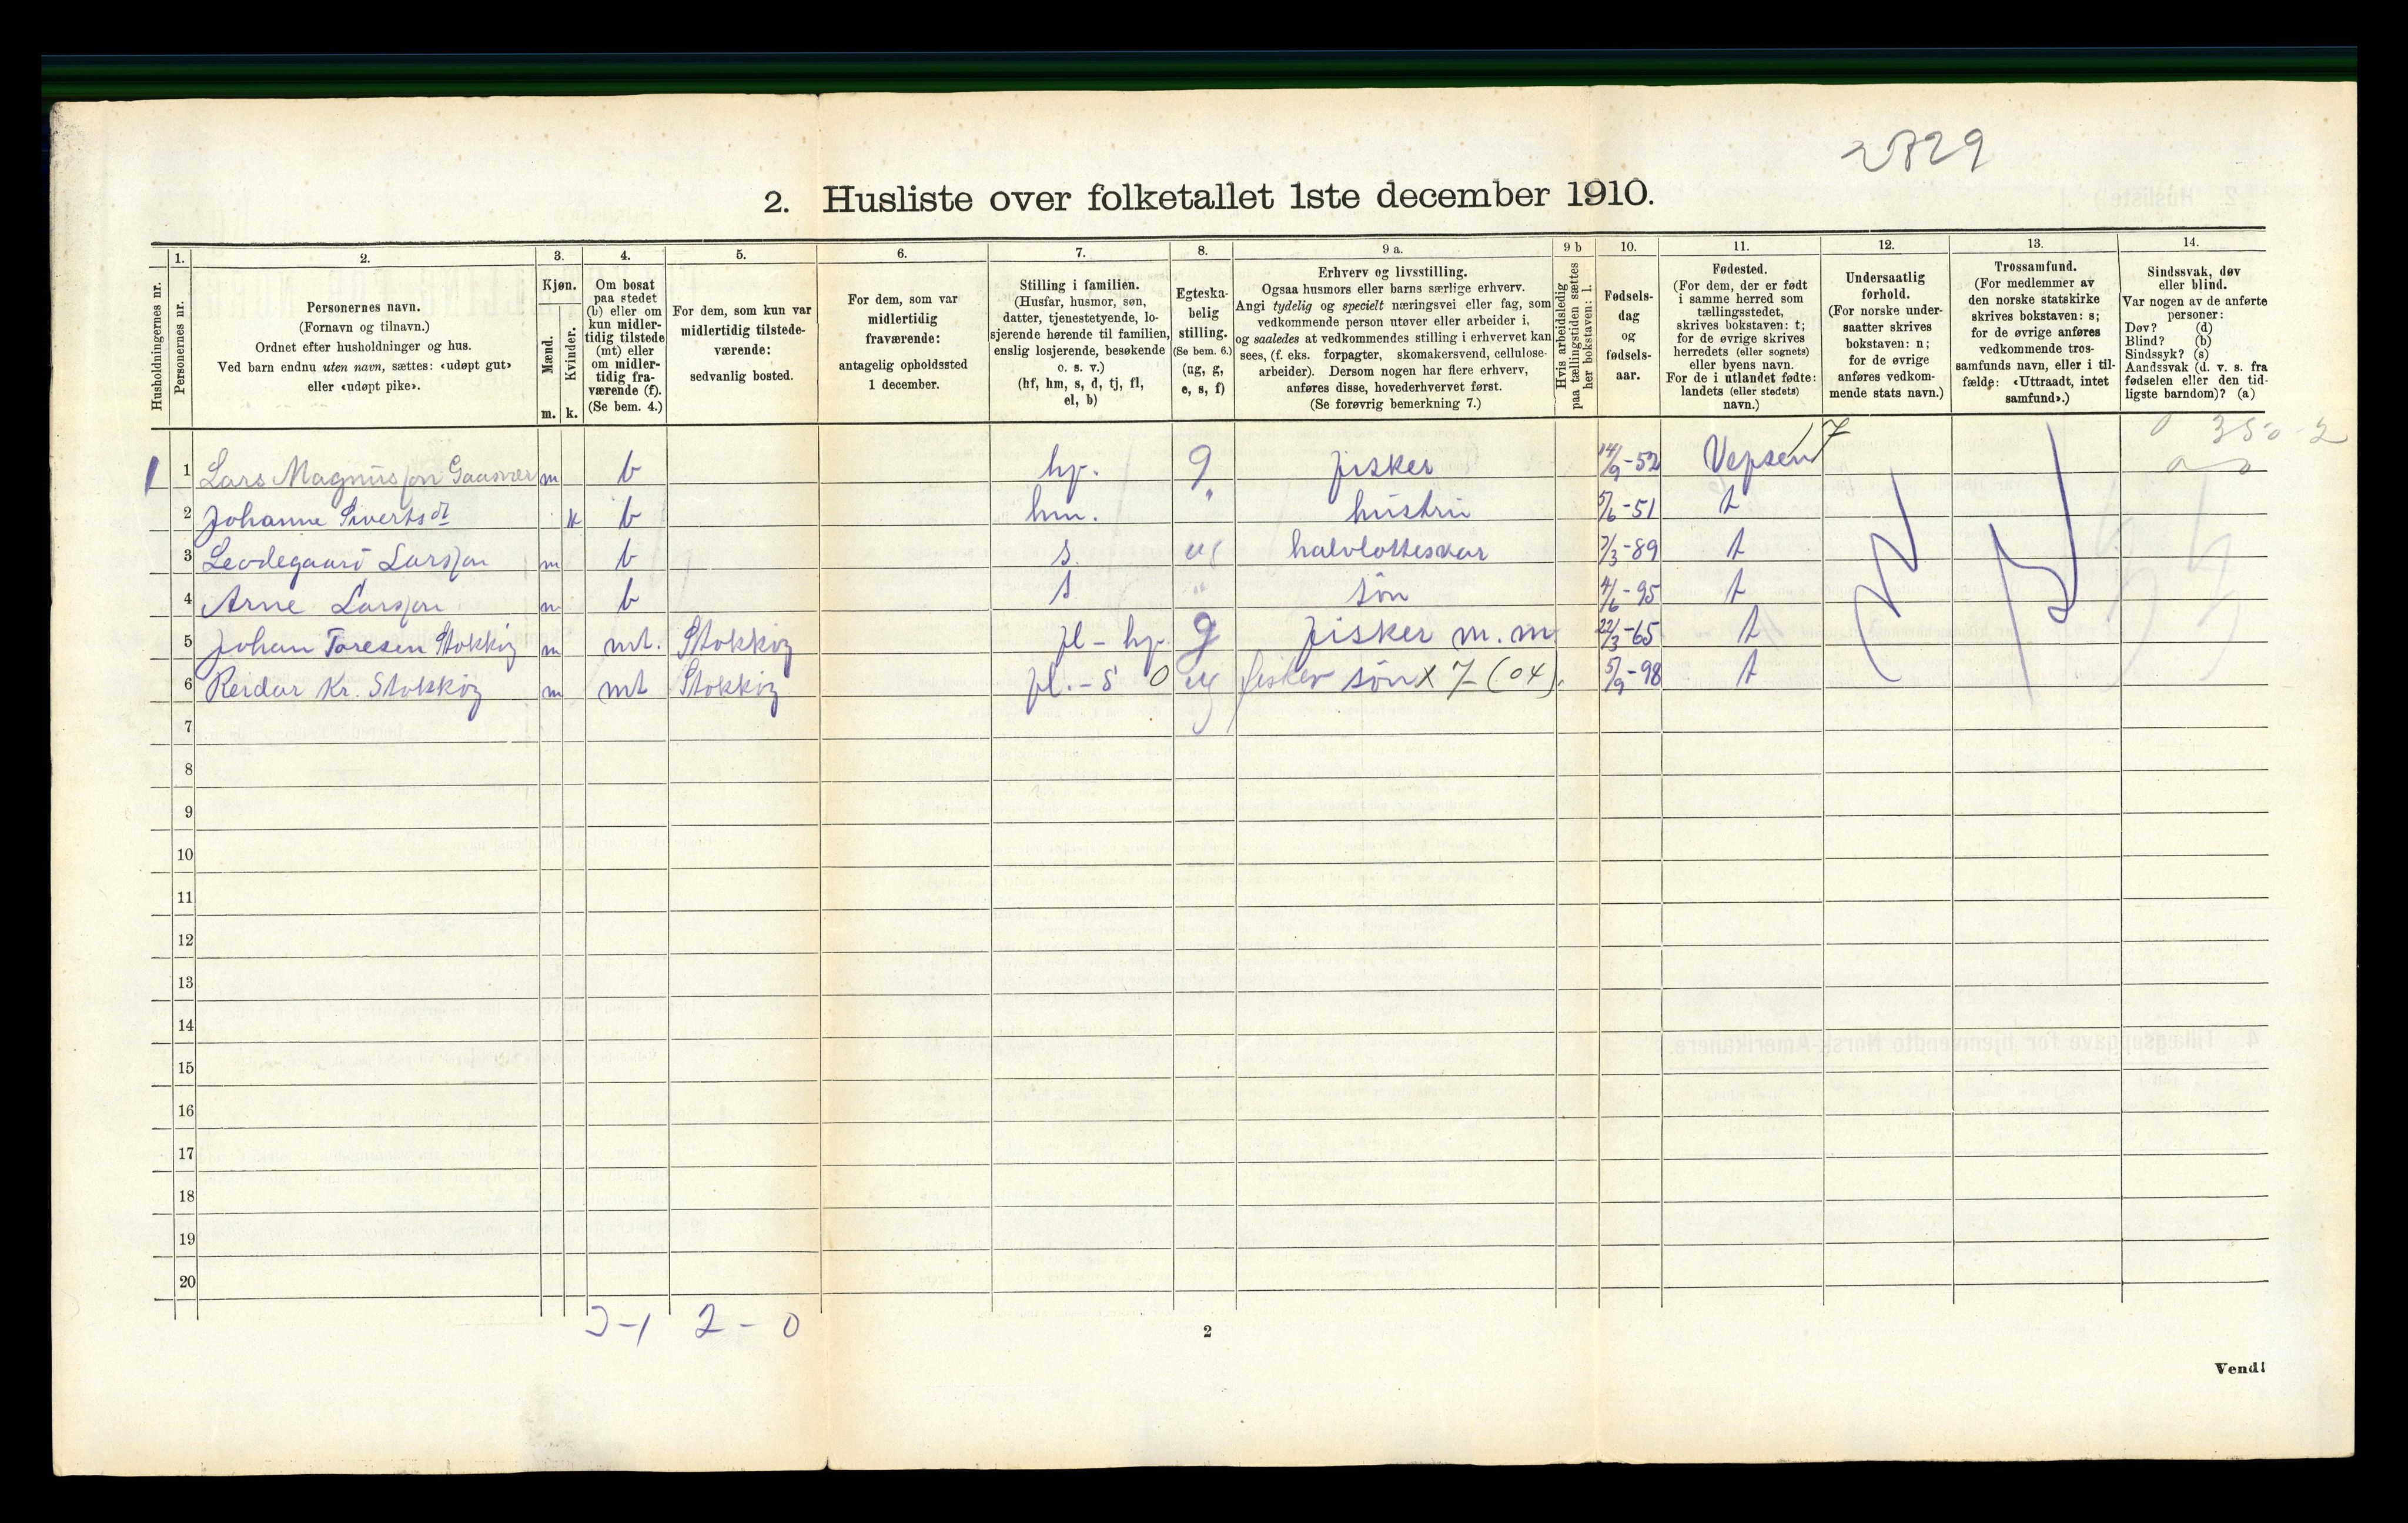 2829
2. Husliste over folketallet 1ste december 1910.
Husholdningernes nr.
1.
Personernes nr.
2.
Personernes navn.
(Fornavn og tilnavn.)
Ordnet efter husholdninger og hus.
Ved barn endnu uten navn, sættes: «udøpt gut»
eller «udøpt pike».
3.
Kjøn.
Mænd.
Kvinder.
m. k.
4.
Om bosat
paa stedet
(b) eller om
kun midler-
tidig tilstede
(mt) eller
om midler-
tidig fra-
værende (f).
(Se bem. 4.)
5.
For dem, som kun var
midlertidig tilstede-
værende:
sedvanlig bosted.
6.
For dem, som var
midlertidig
fraværende:
antagelig opholdssted
1 december.
7.
Stilling i familien.
(Husfar, husmor, søn,
datter, tjenestetyende, lo-
sjerende hørende til familien,
enslig losjerende, besøkende
o. s. v.)
(hf, hm, s, d, tj, fl,
el, b)
8.
Egteska-
belig
stilling.
(Se bem. 6.)
(ug, g,
e, s, f)
9 a.
Erhverv og livsstilling.
Ogsaa husmors eller barns særlige erhverv.
Angi tydelig og specielt næringsvei eller fag, som
vedkommende person utøver eller arbeider i,
og saaledes at vedkommendes stilling i erhvervet kan
sees, (f. eks. forpagter, skomakersvend, cellulose-
arbeider). Dersom nogen har flere erhverv,
anføres disse, hovederhvervet først.
(Se forøvrig bemerkning 7.)
9 b
Hvis arbeidsledig
paa tællingstiden sættes
her bokstaven: l.
10.
Fødsels-
dag
og
fødsels-
aar.
11.
Fødested.
(For dem, der er født
i samme herred som
tællingsstedet,
skrives bokstaven: t;
for de øvrige skrives
herredets (eller sognets)
eller byens navn.
For de i utlandet fødte:
landets (eller stedets)
navn.)
12.
Undersaatlig
forhold.
(For norske under-
saatter skrives
bokstaven: n;
for de øvrige
anføres vedkom-
mende stats navn.)
13.
Trossamfund.
(For medlemmer av
den norske statskirke
skrives bokstaven: s;
for de øvrige anføres
vedkommende tros-
samfunds navn, eller i til-
fælde: «Uttraadt, intet
samfund».)
14.
Sindssvak, døv
eller blind.
Var nogen av de anførte
personer:
Døv? (d)
Blind? (b)
Sindssyk? (s)
Aandssvak (d. v. s. fra
fødselen eller den tid-
ligste barndom)? (a)
1 1 Lars Magnusson Gaasvær m b hf. g fisker 14/9-52 Vefsen 7
2 Johanne Sivertsdt k b hm. " hustru 5/6-51 t
3 Leodegaard Larsson m b s. ug halvlotteskar 7/3-89 t
4 Arne Larsson m b s " søn 4/6-95 t
5 Johan Toresen Stokkøy m mt. Stokkøy fl - hf. g fisker m.m. 22/3-65 t
6 Reidar Kr. Stokkøy m mt Stokkøy fl. - s 0 ug fisker søn x 7 - (04). 5/9-98 t
7
8
9
10
11
12
13
14
15
16
17
18
19
20
3-1 2-0
2
Vend!